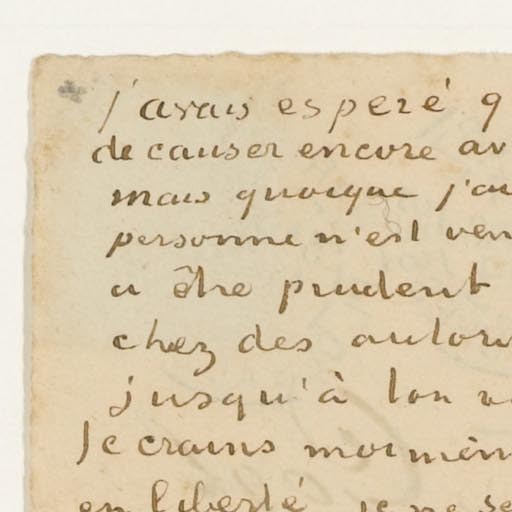 j'avais esperé q
de causer encore av
mais quoique j'au
personne n'est ven
a être prudent
chez des autori
jusqu'à ton
Je crains moi mêm
en liberté je ne se